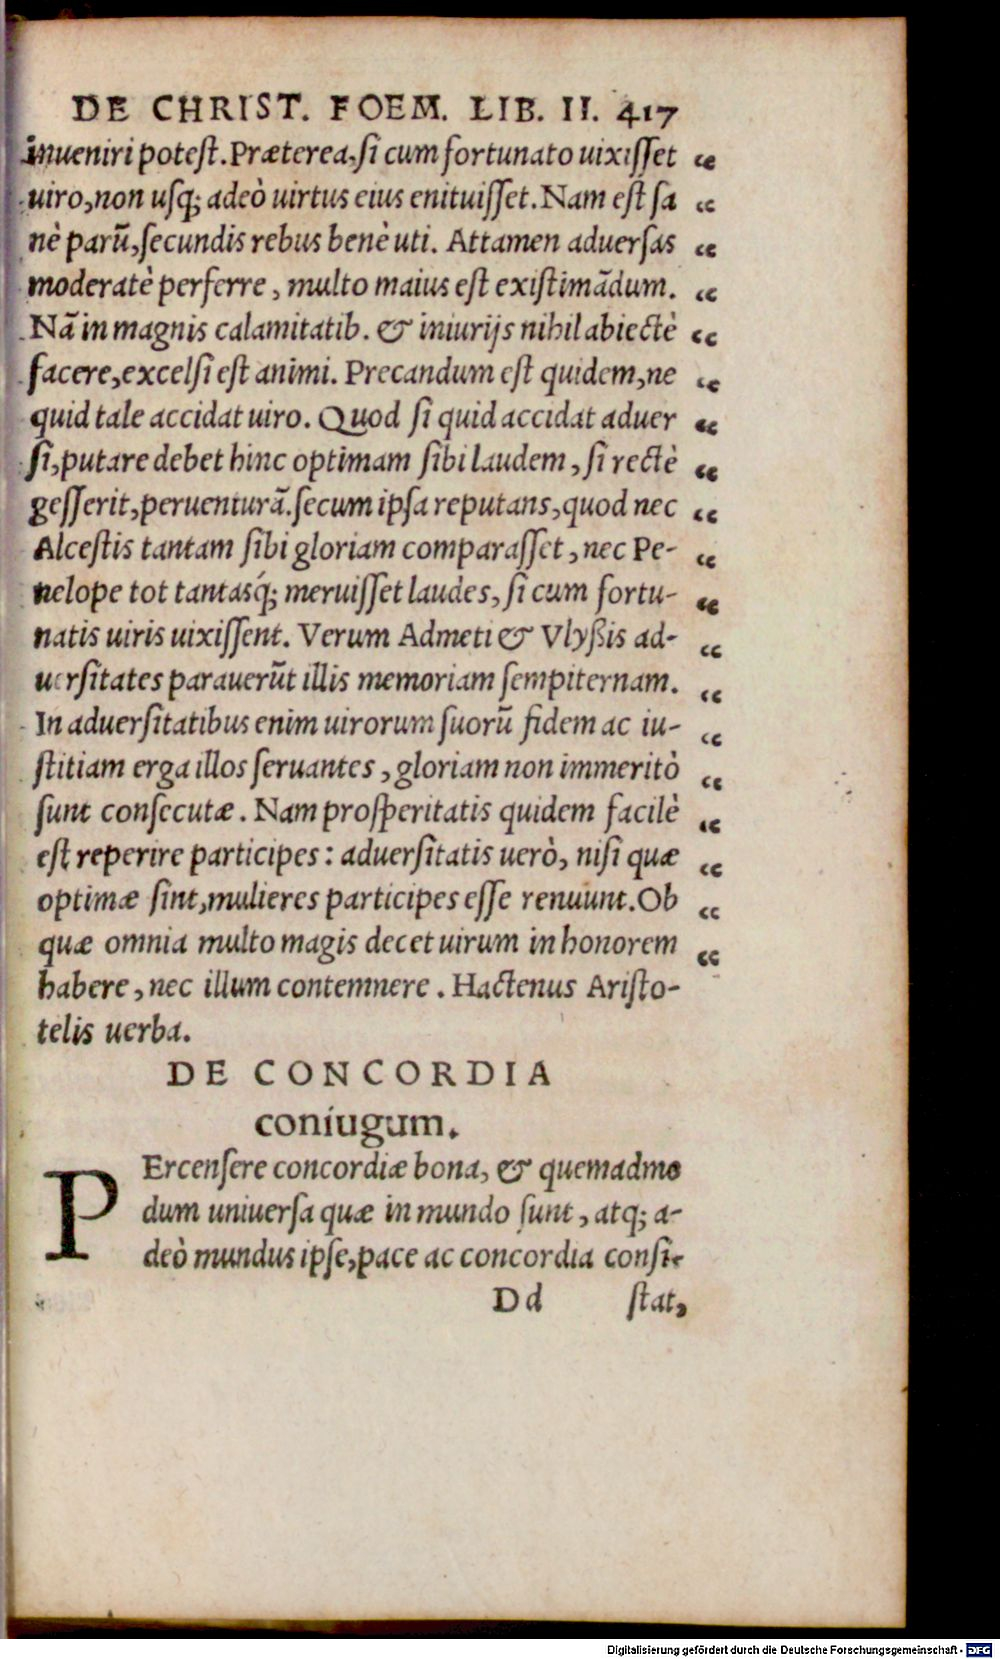 DE CHRIST. FOEM. LIB. II. 417
inueniri potest. Præterea, si cum fortunato uixisset “
uiro, non usq; adeò uirtus eius enituisset. Nam est sa “
nè parũ, secundis rebus benè uti. Attamen aduersas “
moderatè perferre, multo maius est existimãdum. “
Nã in magnis calamitatib. & iniurijs nihil abiectè “
facere, excelsi est animi. Precandum est quidem, ne “
quid tale accidat uiro. Quod si quid accidat aduer “
si, putare debet hinc optimam sibi laudem, si rectè “
gesserit, peruenturã. secum ipsa reputans, quod nec “
Alcestis tantam sibi gloriam comparasset, nec Pe- “
nelope tot tantasq́; meruisset laudes, si cum fortu- “
natis uiris uixissent. Verum Admeti & Vlyßis ad- “
uersitates parauerũt illis memoriam sempiternam. “
In aduersitatibus enim uirorum suorũ fidem ac iu- “
stitiam erga illos seruantes, gloriam non immeritò “
sunt consecutæ. Nam prosperitatis quidem facilè “
est reperire participes: aduersitatis uerò, nisi quæ “
optimæ sint, mulieres participes esse renuunt. Ob “
quæ omnia multo magis decet uirum in honorem “
habere, nec illum contemnere. Hactenus Aristo-
telis uerba.
DE CONCORDIA
coniugum.
PErcensere concordiæ bona, & quemadmo
dum uniuersa quæ in mundo sunt, atq; a-
deò mundus ipse, pace ac concordia consi-
Dd stat,
Digitalisierung gefördert durch die Deutsche Forschungsgemeinschaft - DFG